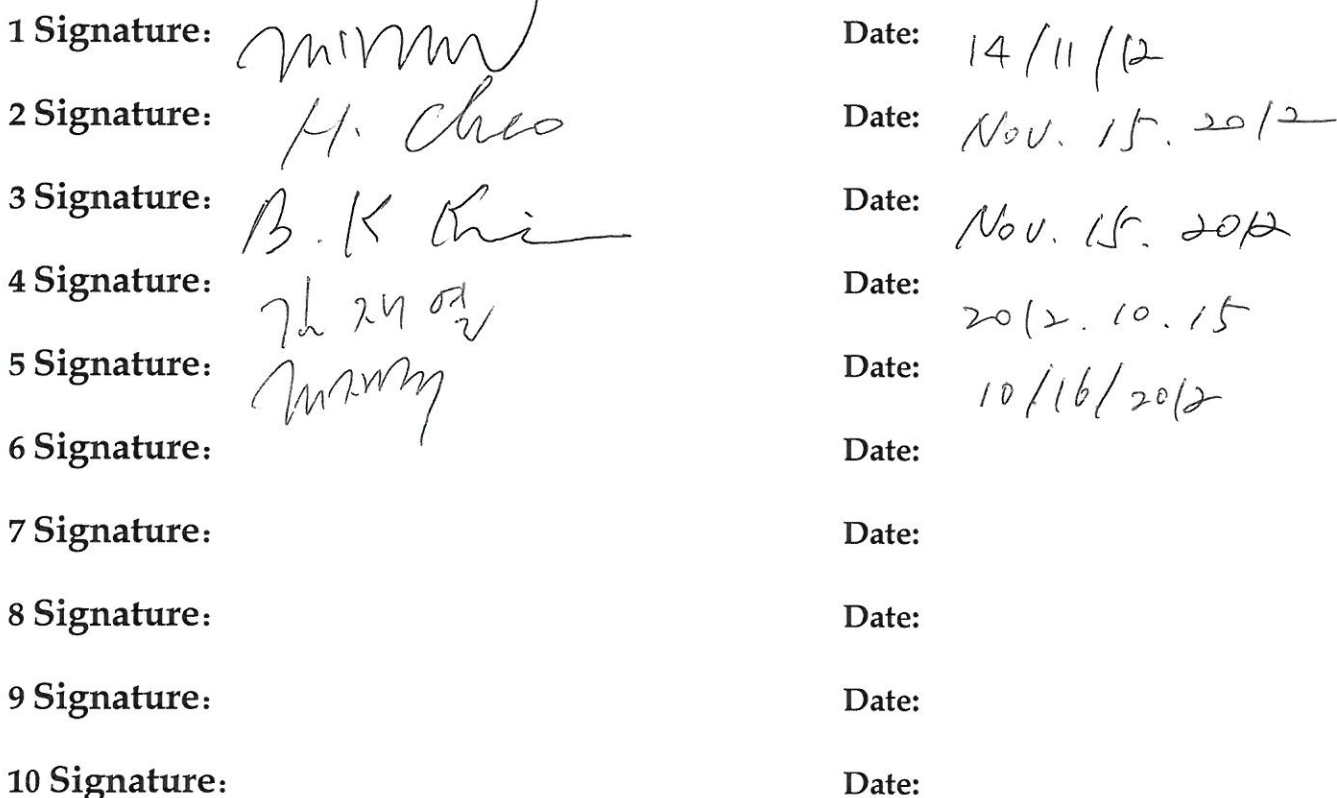 1 Signature: Date: 14/11/12
2 Signature: H. Cheo Date: Nov. 15. 2012
3 Signature: B. K Date: Nov. 15. 2012
4 Signature: 김재열 Date: 2012. 10. 15
5 Signature: Date: 10/16/2012
6 Signature: Date:
7 Signature: Date:
8 Signature: Date:
9 Signature: Date:
10 Signature: Date: